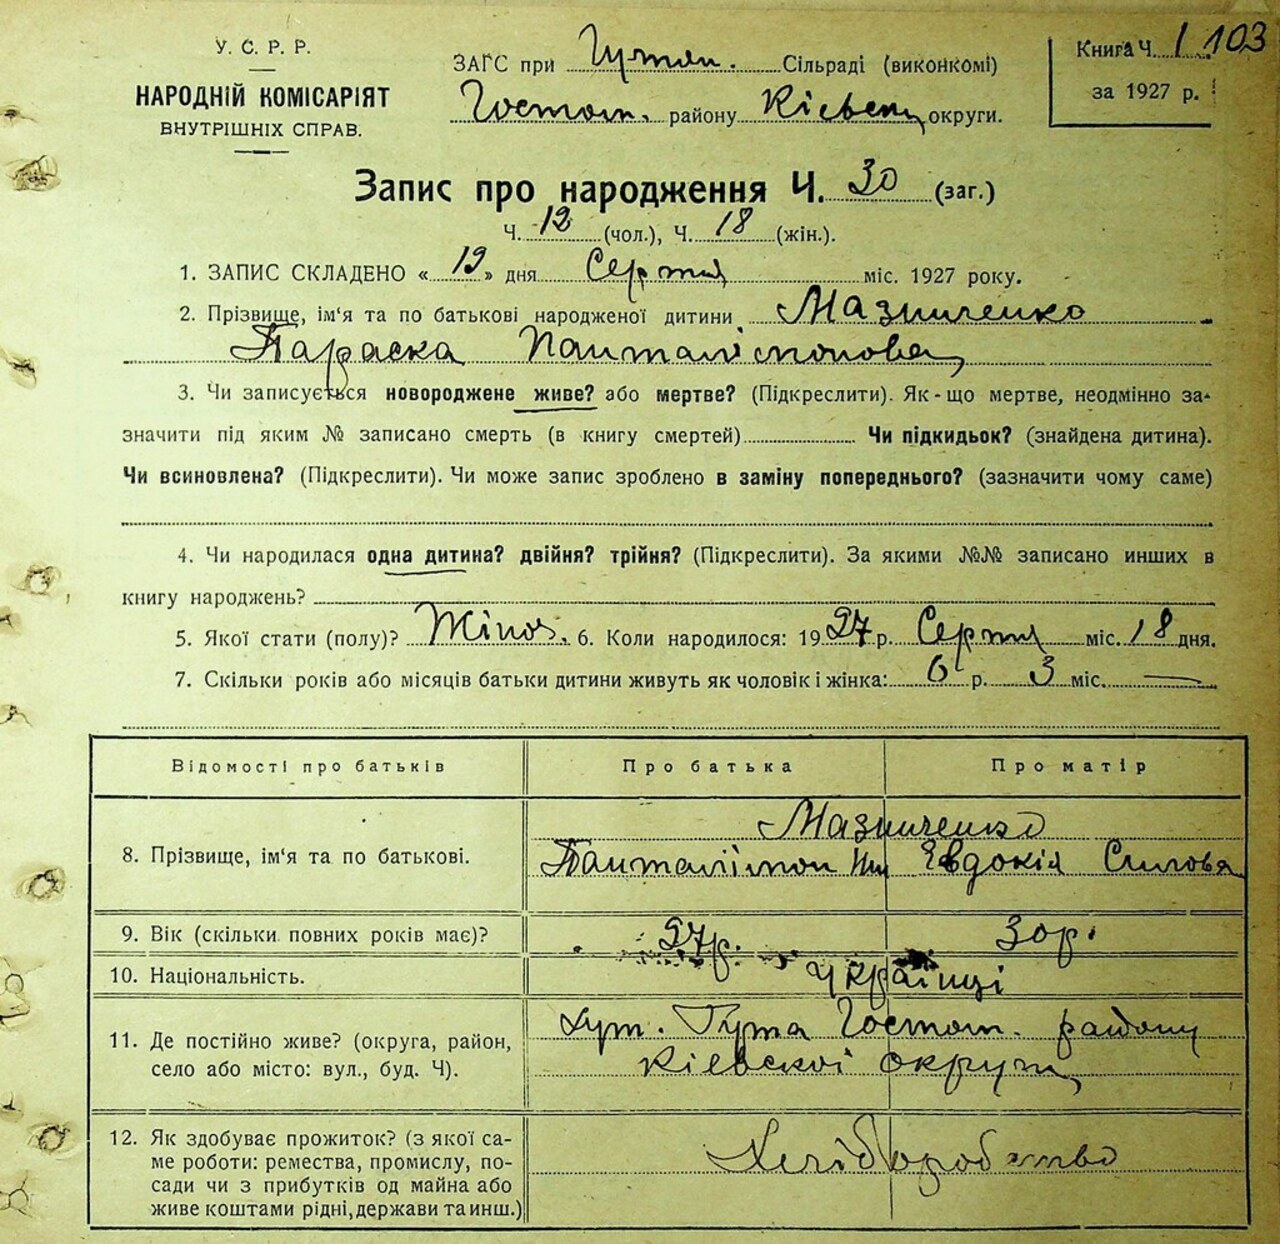 У. С. Р. Р.
НАРОДНІЙ КОМІСАРІЯТ
ВНУТРІШНІХ СПРАВ.
ЗАГС при Гутян. Сільраді (виконкомі)
Гостом. району Кієвськ округи.
Книга Ч. 1 103
за 1927 р.
Запис про народження Ч. 30 (заг.)
Ч. 12 (чол.), Ч. 18 (жін.).
1. ЗАПИС СКЛАДЕНО « 19 » дня Серпня міс. 1927 року.
2. Прізвище, ім'я та по батькові народженої дитини Мазниченко
Параска Панталімонова
3. Чи записується новороджене живе? або мертве? (Підкреслити). Як-що мертве, неодмінно за-
значити під яким № записано смерть (в книгу смертей) Чи підкидьок? (знайдена дитина).
Чи всиновлена? (Підкреслити). Чи може запис зроблено в заміну попереднього? (зазначити чому саме)
4. Чи народилася одна дитина? двійня? трійня? (Підкреслити). За якими №№ записано инших в
книгу народжень?
5. Якої стати (полу)? Жіноч. 6. Коли народилося: 1927 р. Серпня міс. 18 дня.
7. Скільки років або місяців батьки дитини живуть як чоловік і жінка: 6 р. 3 міс. —
Відомості про батьків Про батька Про матір
8. Прізвище, ім'я та по батькові. Мазниченко
Панталіімон Евдокія Силовья
9. Вік (скільки повних років має)? 27р. 30р.
10. Національність. Українці
11. Де постійно живе? (округа, район,
село або місто: вул., буд. Ч).
хут. Гута Гостом. району
Кіевскоі округи
12. Як здобуває прожиток? (з якої са-
ме роботи: ремества, промислу, по-
сади чи з прибутків од майна або
живе коштами рідні, держави та инш.)
Хлібооробство